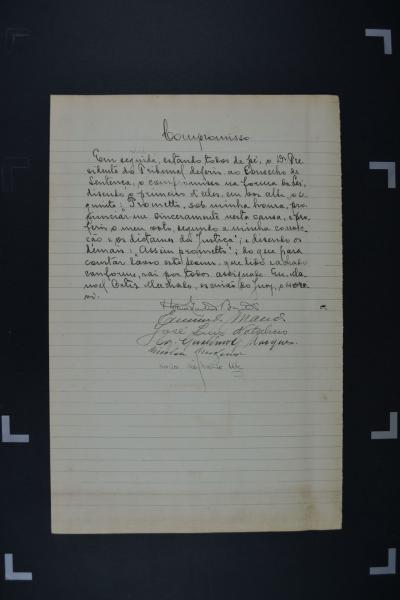 Compromisso
Em seguida, estando todos de pé, o Dr. Pre-
sidente do Tribunal deferiu ao Conselho de
Sentença, o compromisso na forma da lei,
dizendo o primeiro d'elles, em voz alta, o se-
guinte: "Prometto, sob minha honra, pro-
nunciar-me sinceramente nesta causa, e pro-
ferir o meu voto, segundo a minha convic-
ção e os dictames da Justiça"; e dizendo os
demais: "Assim prometto"; do que para
constar lavro este termo, que lido e achado
conforme, vai por todos assignado. Eu, Ma-
noel Machado, escrivão do Jury, o escre-
vi.
José Luiz
Marques